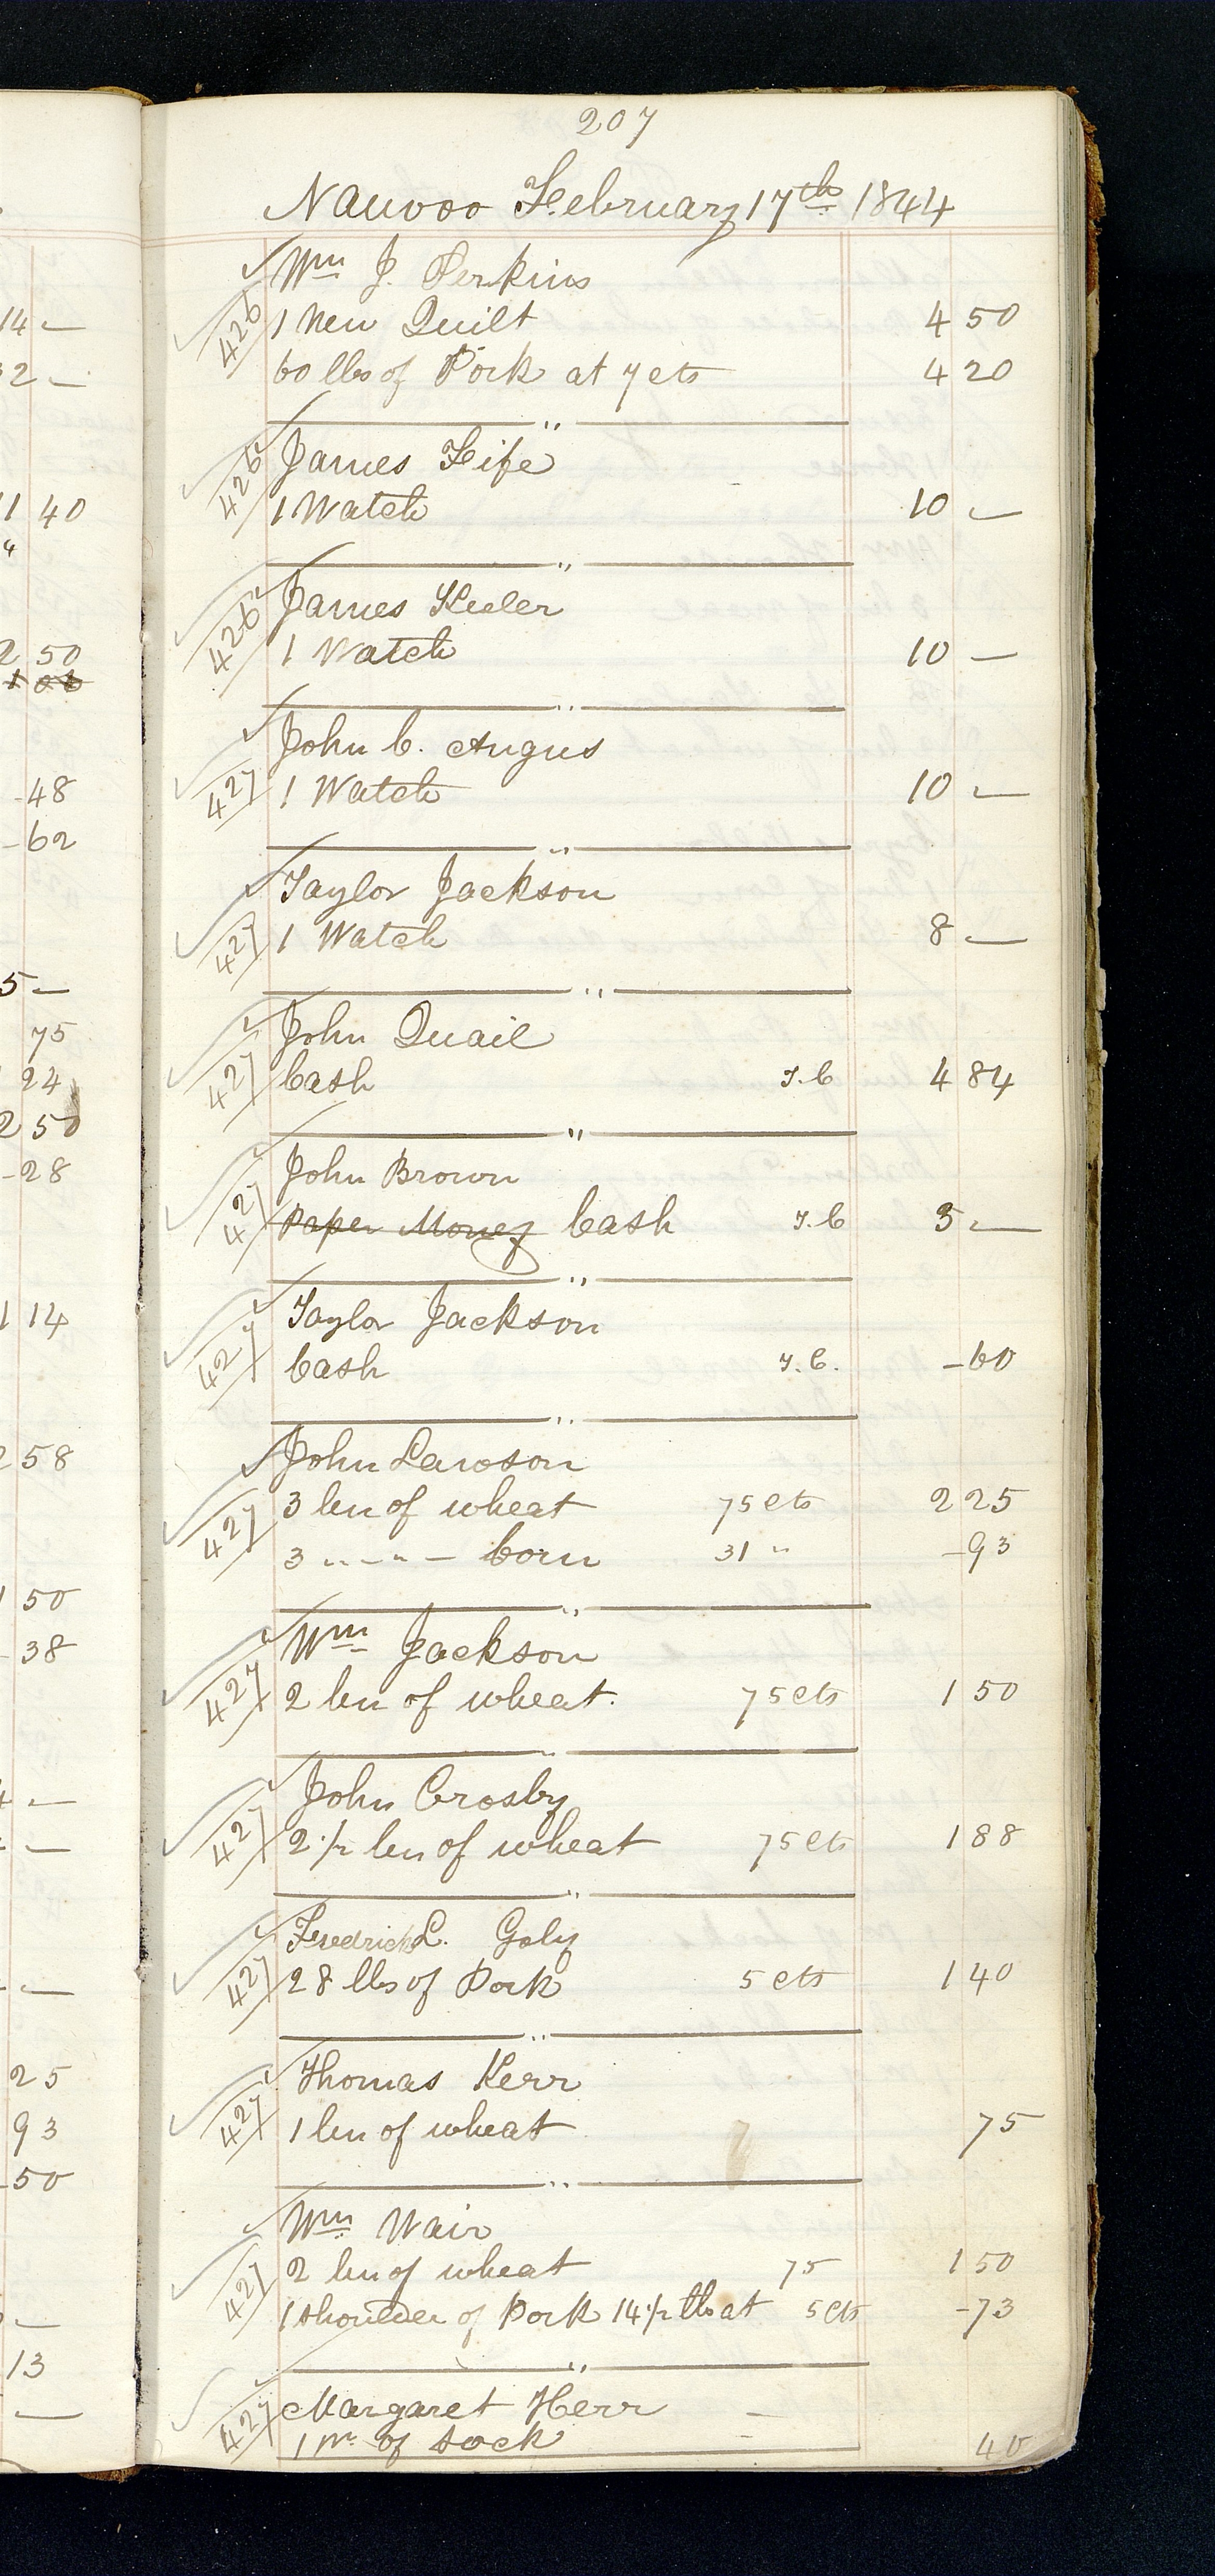 207
Nauvoo February 17th 1844
Wm J. Perkins
426 1 New Quilt 4 50
60 lbs of Pork at 7 cts 4 20
426 James Fife
1 Watch 10 —
426 James Keeler
1 Watch 10 —
John C. Angus
427 1 Watch 10 —
Taylor Jackson
427 1 Watch 8 —
John Quail
427 Cash T.C 4 84
John Brown
427 Paper Money Cash T.C 5 —
Taylor Jackson
427 Cash T.C. - 60
John Lawson
427 3 bu of wheat 75 cts 2 25
3 " - " - Corn 31 " - 93
Wm Jackson
427 2 bu of wheat. 75 cts 1 50
John Crosby
427 2 1/2 bu of wheat 75 cts 1 88
Fredrick L. Goly
427 28 lbs of Pork 5 cts 1 40
Thomas Kerr
427 1 bu of wheat 75
Wm Wair
427 2 bu of wheat 75 1 50
1 shoulder of Pork 14 1/2 lb at 5 cts - 73
Margaret Herr
427 1 pr of sock 40
14 —
2 —
1 40
"
2 50
1 06
- 48
- 62
5 —
75
24
2 50
- 28
1 14
2 58
1 50
- 38
4 —
25
93
50
13